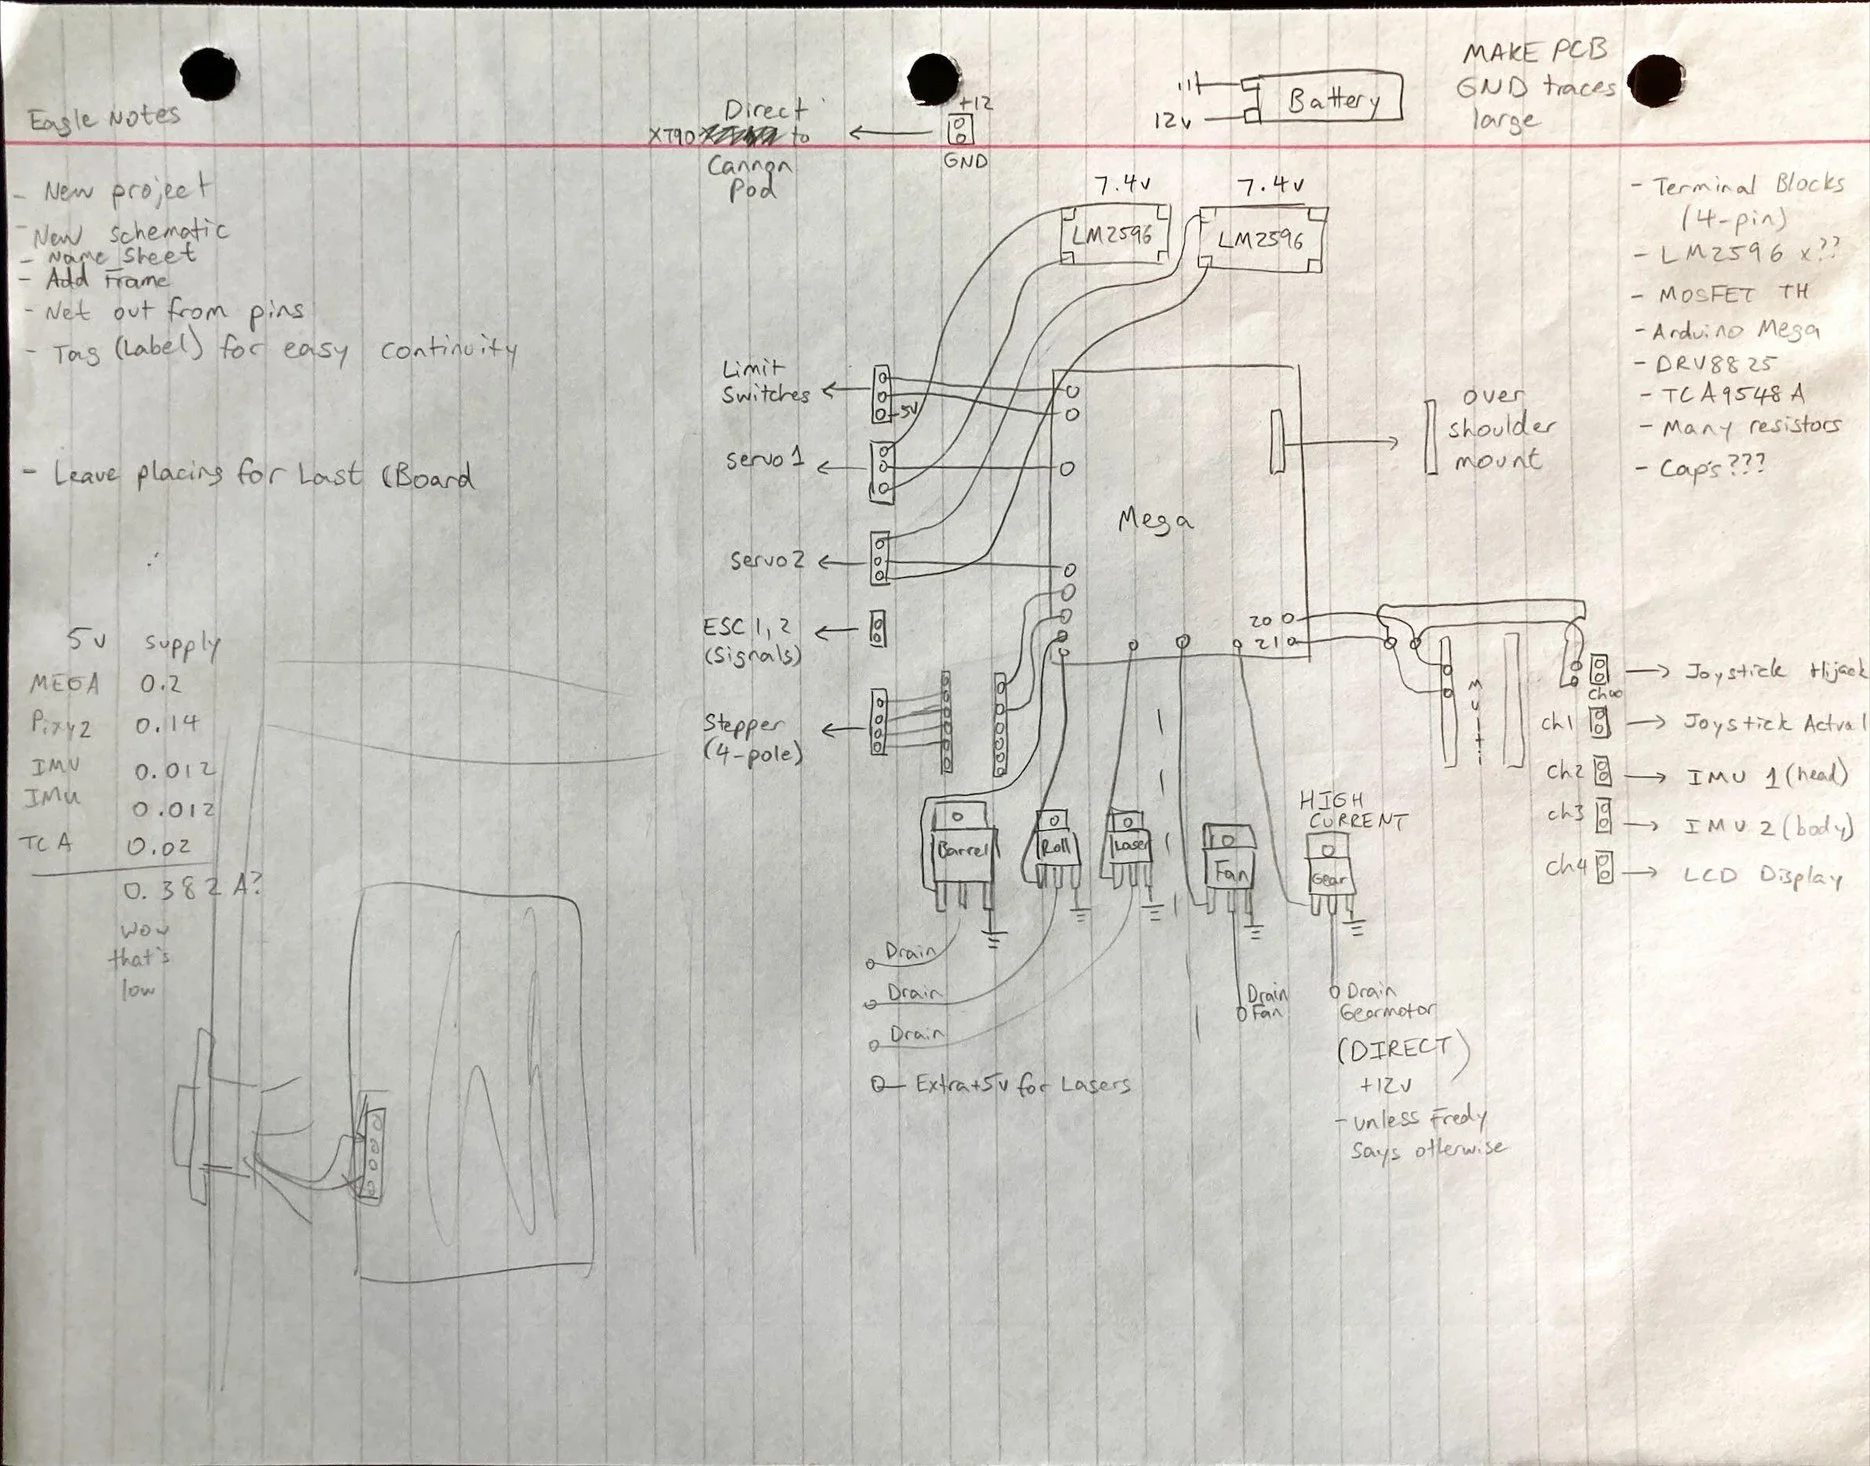 Eagle Notes
- New project
- New schematic
- Name Sheet
- Add Frame
- Net out from pins
- Tag (Label) for easy continuity
- Leave placing for Last (Board
5v supply
MEGA 0.2
Pixy2 0.14
IMU 0.012
IMU 0.012
TCA 0.02
0.382 A?
wow
that's
low
Direct
XT90 to
Cannon
Pod
+12
GND
Battery
12v
MAKE PCB
GND traces
large
7.4v
LM2596
7.4v
LM2596
Limit
Switches
5V
Servo 1
Servo 2
ESC 1, 2
(Signals)
Stepper
(4-pole)
Mega
20
21
over
shoulder
mount
- Terminal Blocks
(4-pin)
- LM2596 x??
- MOSFET TH
- Arduino Mega
- DRV8825
- TCA9548A
- Many resistors
- Caps???
Multi
Ch0 Joystick Hijack
Ch1 Joystick Actual
Ch2 IMU 1 (head)
Ch3 IMU 2 (body)
Ch4 LCD Display
Barrel
Roll
Laser
Fan
HIGH
CURRENT
Gear
Drain
Drain
Drain
Extra +5v for Lasers
Drain
Fan
Drain
Gearmotor
(DIRECT)
+12v
- unless Fredy
says otherwise